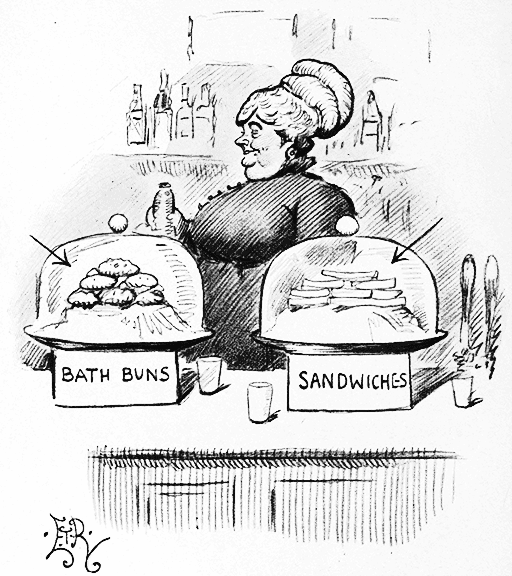 BATH BUNS
SANDWICHES
E.T.R.